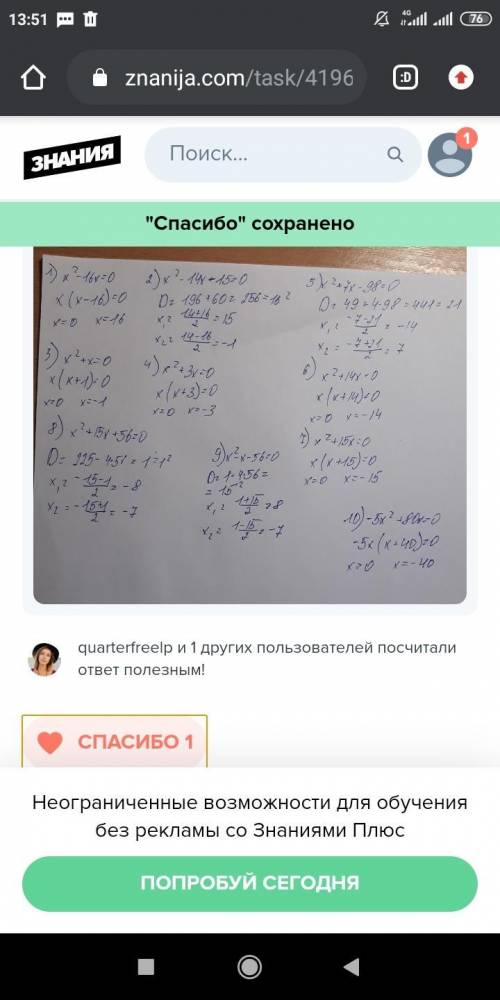 13:51
4G
76
znanija.com/task/4196
:D
ЗНАНИЯ
Поиск...
1
"Спасибо" сохранено
1) x²-16x=0
x(x-16)=0
x=0 x=16
2) x²-14x-15=0
D=196+60=256=16²
x₁= (14+16)/2 = 15
x₂= (14-16)/2 = -1
5) x²+7x-98=0
D=49+4·98=441=21
x₁= (-7-21)/2 = -14
x₂= (-7+21)/2 = 7
3) x²+x=0
x(x+1)=0
x=0 x=-1
4) x²+3x=0
x(x+3)=0
x=0 x=-3
6) x²+14x=0
x(x+14)=0
x=0 x=-14
8) x²+15x+56=0
x₁= (-15-1)/2 = -8
x₂= (-15+1)/2 = -7
9) x²-x-56=0
= 15²
x₁= (1+15)/2 = 8
x₂= (1-15)/2 = -7
7) x²+15x=0
x(x+15)=0
x=0 x=-15
10) -5x²+80x=0
-5x(x+40)=0
x=0 x=-40
quarterfreelp и 1 других пользователей посчитали
ответ полезным!
СПАСИБО 1
Неограниченные возможности для обучения
без рекламы со Знаниями Плюс
ПОПРОБУЙ СЕГОДНЯ